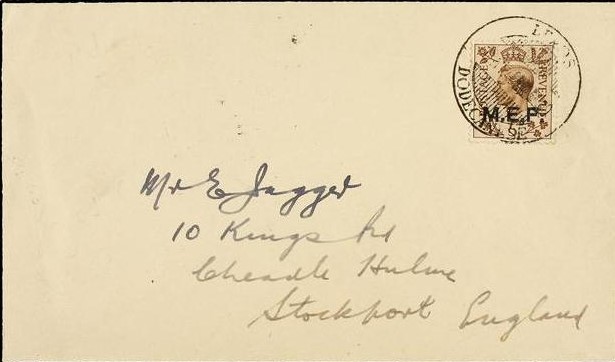 LEROS
REVENUE
M.E.F.
DODECAN
Mr E Jagger
10 Kings Rd
Cheadle Hulme
Stockport England